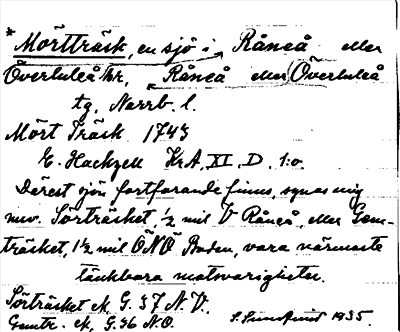 * Mörtträsk, en sjö i Råneå eller
Överluleå kr., Råneå eller Överluleå
tg, Norrb. l.
Mört Träsk 1743
E. Hackzell KrA, XI. D. 1:o.
Därest sjön fortfarande finns, synas mig
nuv. Sörträsket, ½ mil V Råneå, eller Gem-
träsket, 1½ mil ÖNÖ Boden, vara närmaste
tänkbara motsvarigheter.
Sörträsket ek. G. 37 NV.
Gemtr. ek. G. 36 NO. 1935.